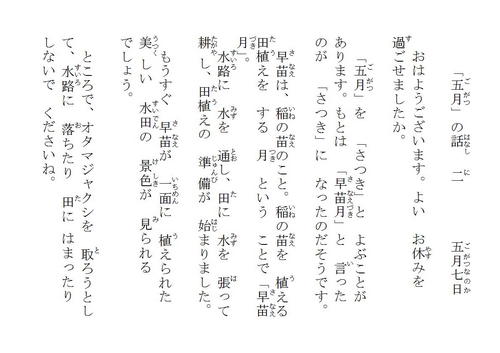 「五月」の話 二 五月七日
おはようございます。よい お休みを
過ごせましたか。
「五月」を 「さつき」と よぶことが
あります。もとは 「早苗月」と 言った
のが 「さつき」に なったのだそうです。
早苗は、稲の苗のこと。稲の苗を 植える
田植えを する 月 という ことで「早苗
月」。
水路に 水を 通し、田に 水を 張って
耕し、田植えの 準備が 始まりました。
もうすぐ 早苗が 一面に 植えられた
美しい 水田の 景色が 見られる
でしょう。
ところで、オタマジャクシを 取ろうとし
て、水路に 落ちたり 田に はまったり
しないで くださいね。